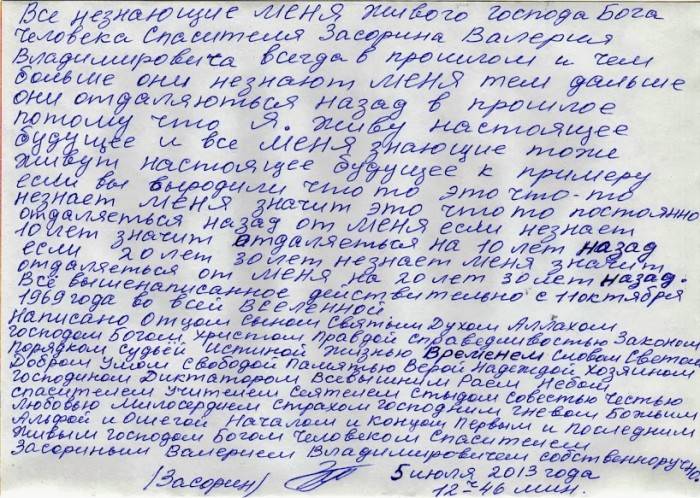 Все незнающие меня живого господа Бога
Человека Спасителя Засорина Валерия
Владимировича всегда в прошлом и чем
больше они незнают меня тем дальше
они отдаляються назад в прошлое
потому что Я. живу настоящее
будущее и все меня знающие тоже
живут настоящее будущее к примеру
если вы выродили что то это что-то
незнает меня значит это что то постоянно
отдаляеться назад от меня если незнает
10 лет значит отдаляеться на 10 лет назад
если 20 лет 30 лет незнает меня значит
отдаляеться от меня на 20 лет 30 лет назад.
Всё вышенаписанное действительно с 11 октября
1969 года во всей Вселенной
написано Отцом сыном Святым Духом Аллахом
господом Богом Христом Правдой Справедливостью Законом
порядком Судьёй Истиной Жизнью Временем Словом Светом
Добром Умом Свободой Памятью Верой Надеждой Хозяином
господином Диктатором Всевышним Раем Небом
Спасителем Учителем Сеятелем Стыдом Совестью Честью
Любовью Милосердием Страхом Господним Гневом Божьим
Альфой и Омегой Началом и Концом Первым и Последним
Живым господом Богом Человеком Спасителем
Засориным Валерием Владимировичем собственноручно
(Засорин) 5 июля 2013 года
12 ч 46 мин.